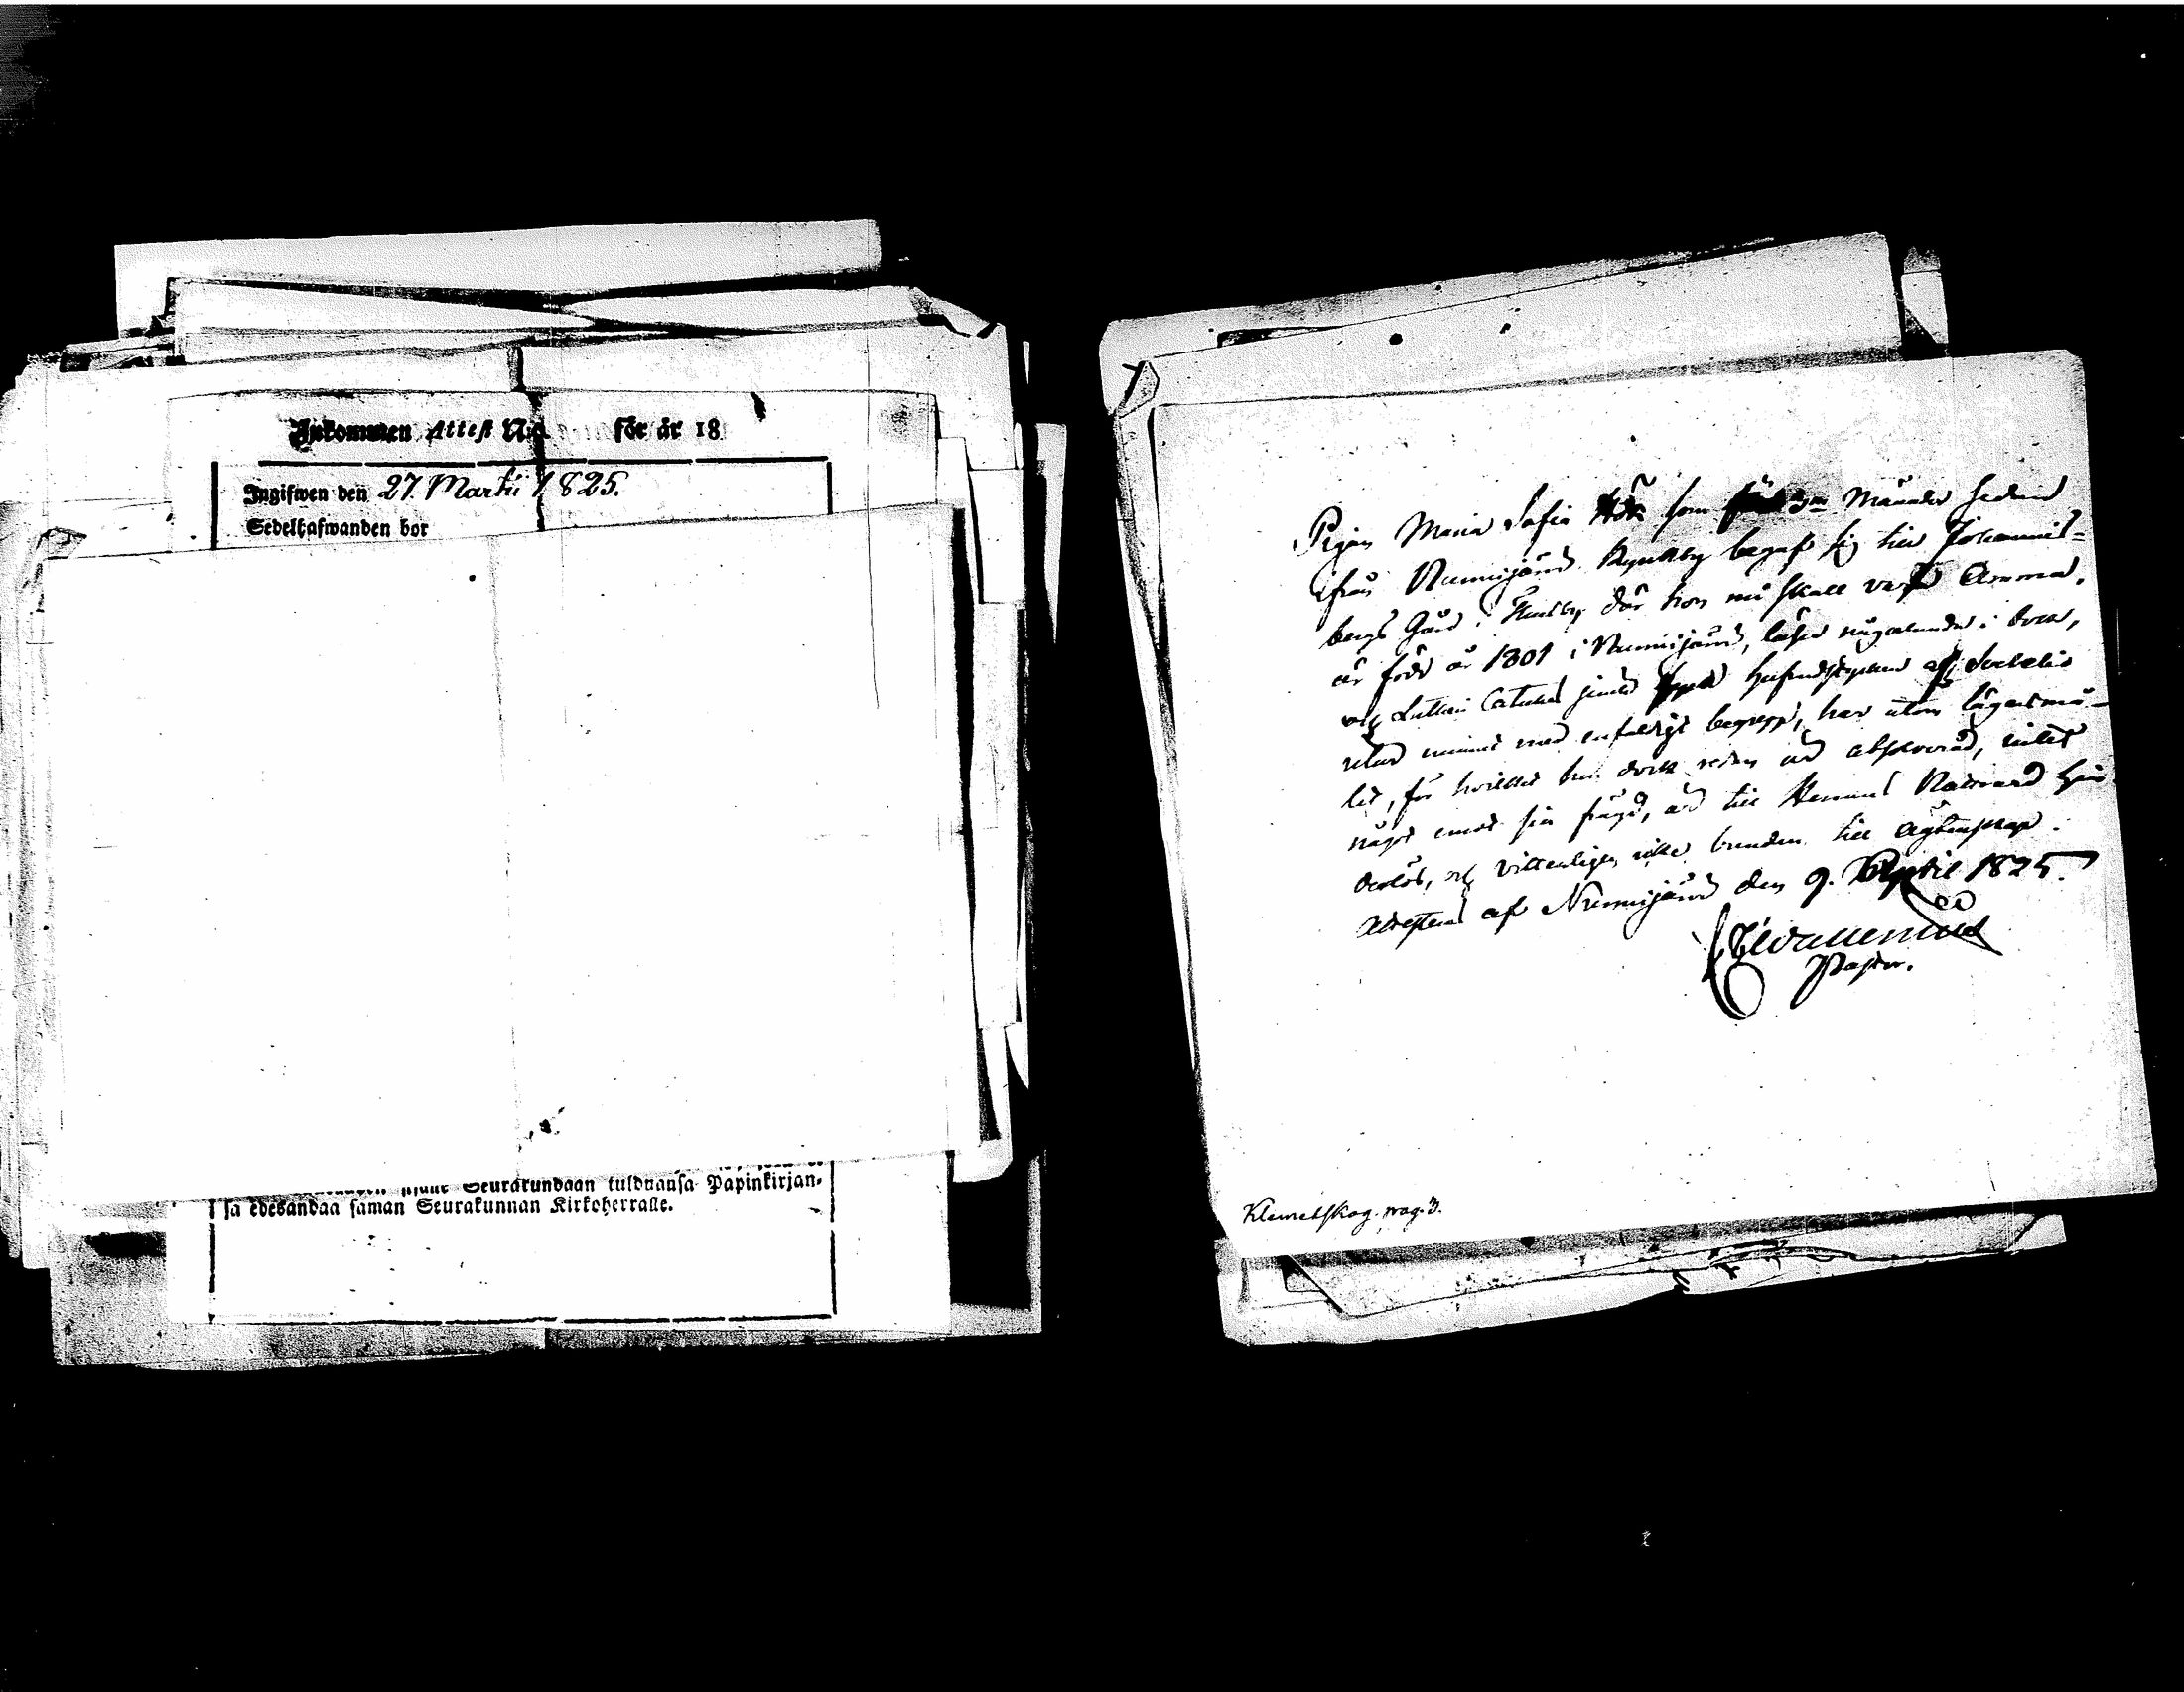 Inkommen Attest N:o för år 18
Ingifwen den 27. Martii 1825.
Sedelhafwanden bor
Seurakundaan tulduansa Papinkirjan-
sa edesandaa saman Seurakunnan Kirkoherralle.
Pigan Maria Sofia Hök som för 3ne Månader sedan
ifrån Nummijärvi Kyrkoby begaf sig till Johannis-
bergs Gård i där hon nu skall vara Amma,
är född år 1801 i Nummijärvi, läser någorlunda i bok,
och Lutheri Cateches jemte Hufvudstycken af Svebelii
utan minnet med enfaldigt begrepp, har utom lägersmå-
let, för hvilket hon dock redan är absolverad, intet
något emot sin frägd, är till Hennes Nattvard hin-
derlös, och vitterligen icke bunden till ägtenskap.
Attesteras af Nummijärvi den 9. April 1825.
Pastor.
Klemetskog. pag. 3.